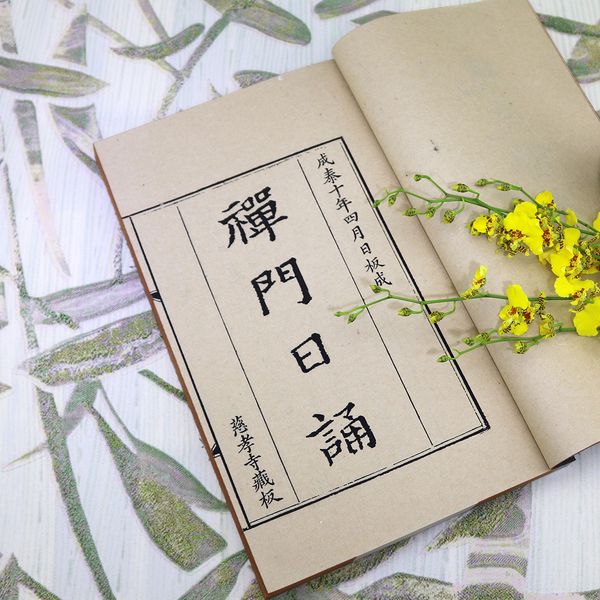 成泰十年四月日板成
禪門日誦
慈孝寺藏板